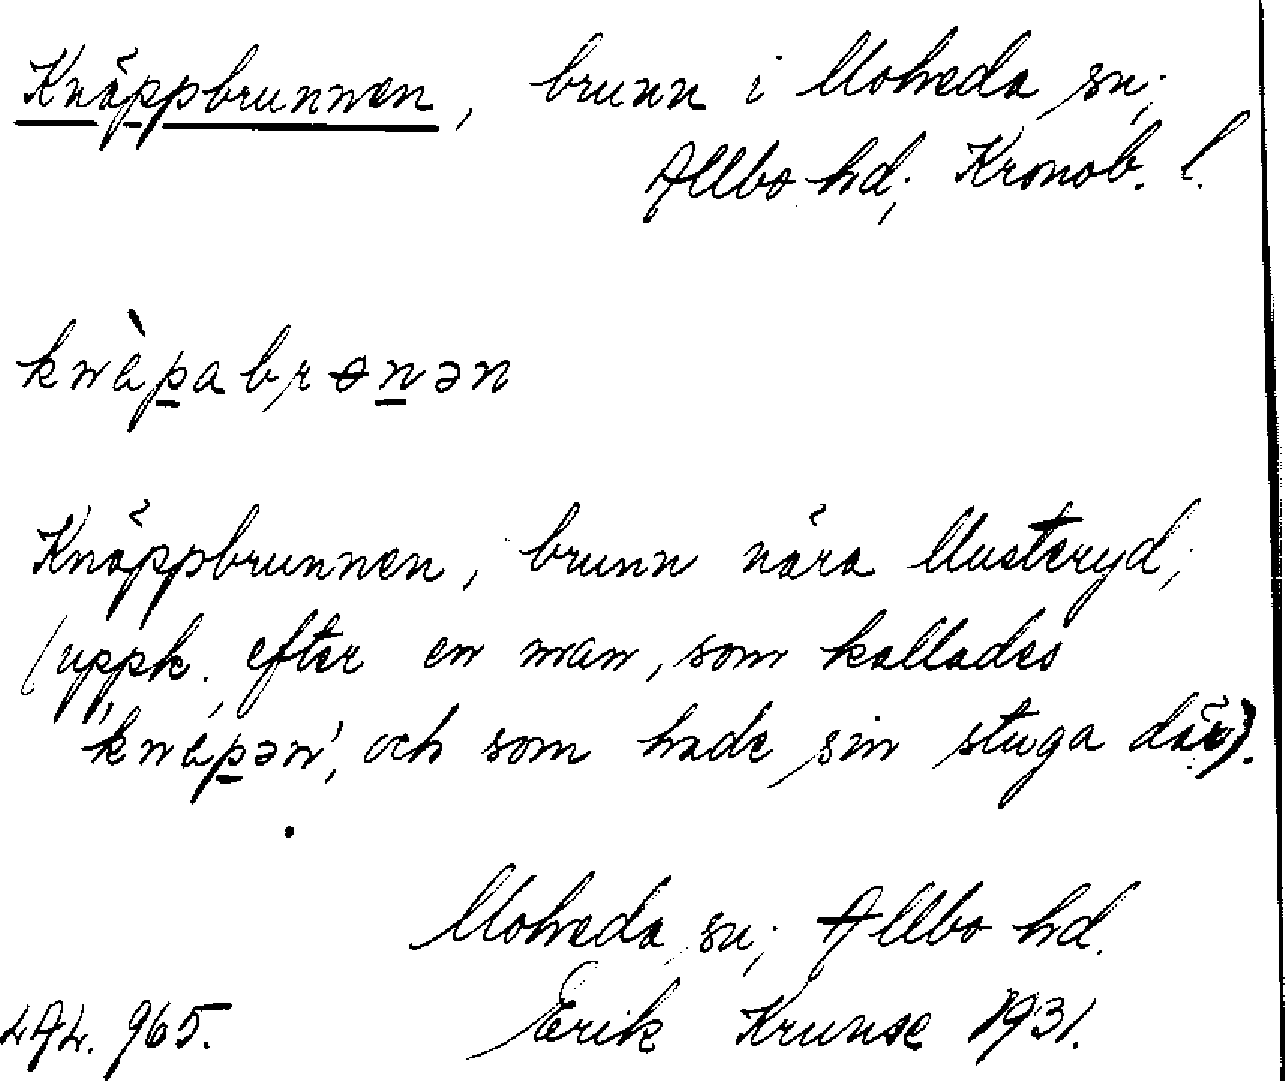 Knäppbrunnen, brunn i Moheda sn;
Allbo hd; Kronob. l.
knèpabrɵnən
Knäppbrunnen, brunn nära Musteryd,
(uppk. efter en man, som kallades
"knèpən", och som hade sin stuga där).
Moheda sn; Allbo hd.
Erik Krunse 1931.
LAL. 965.